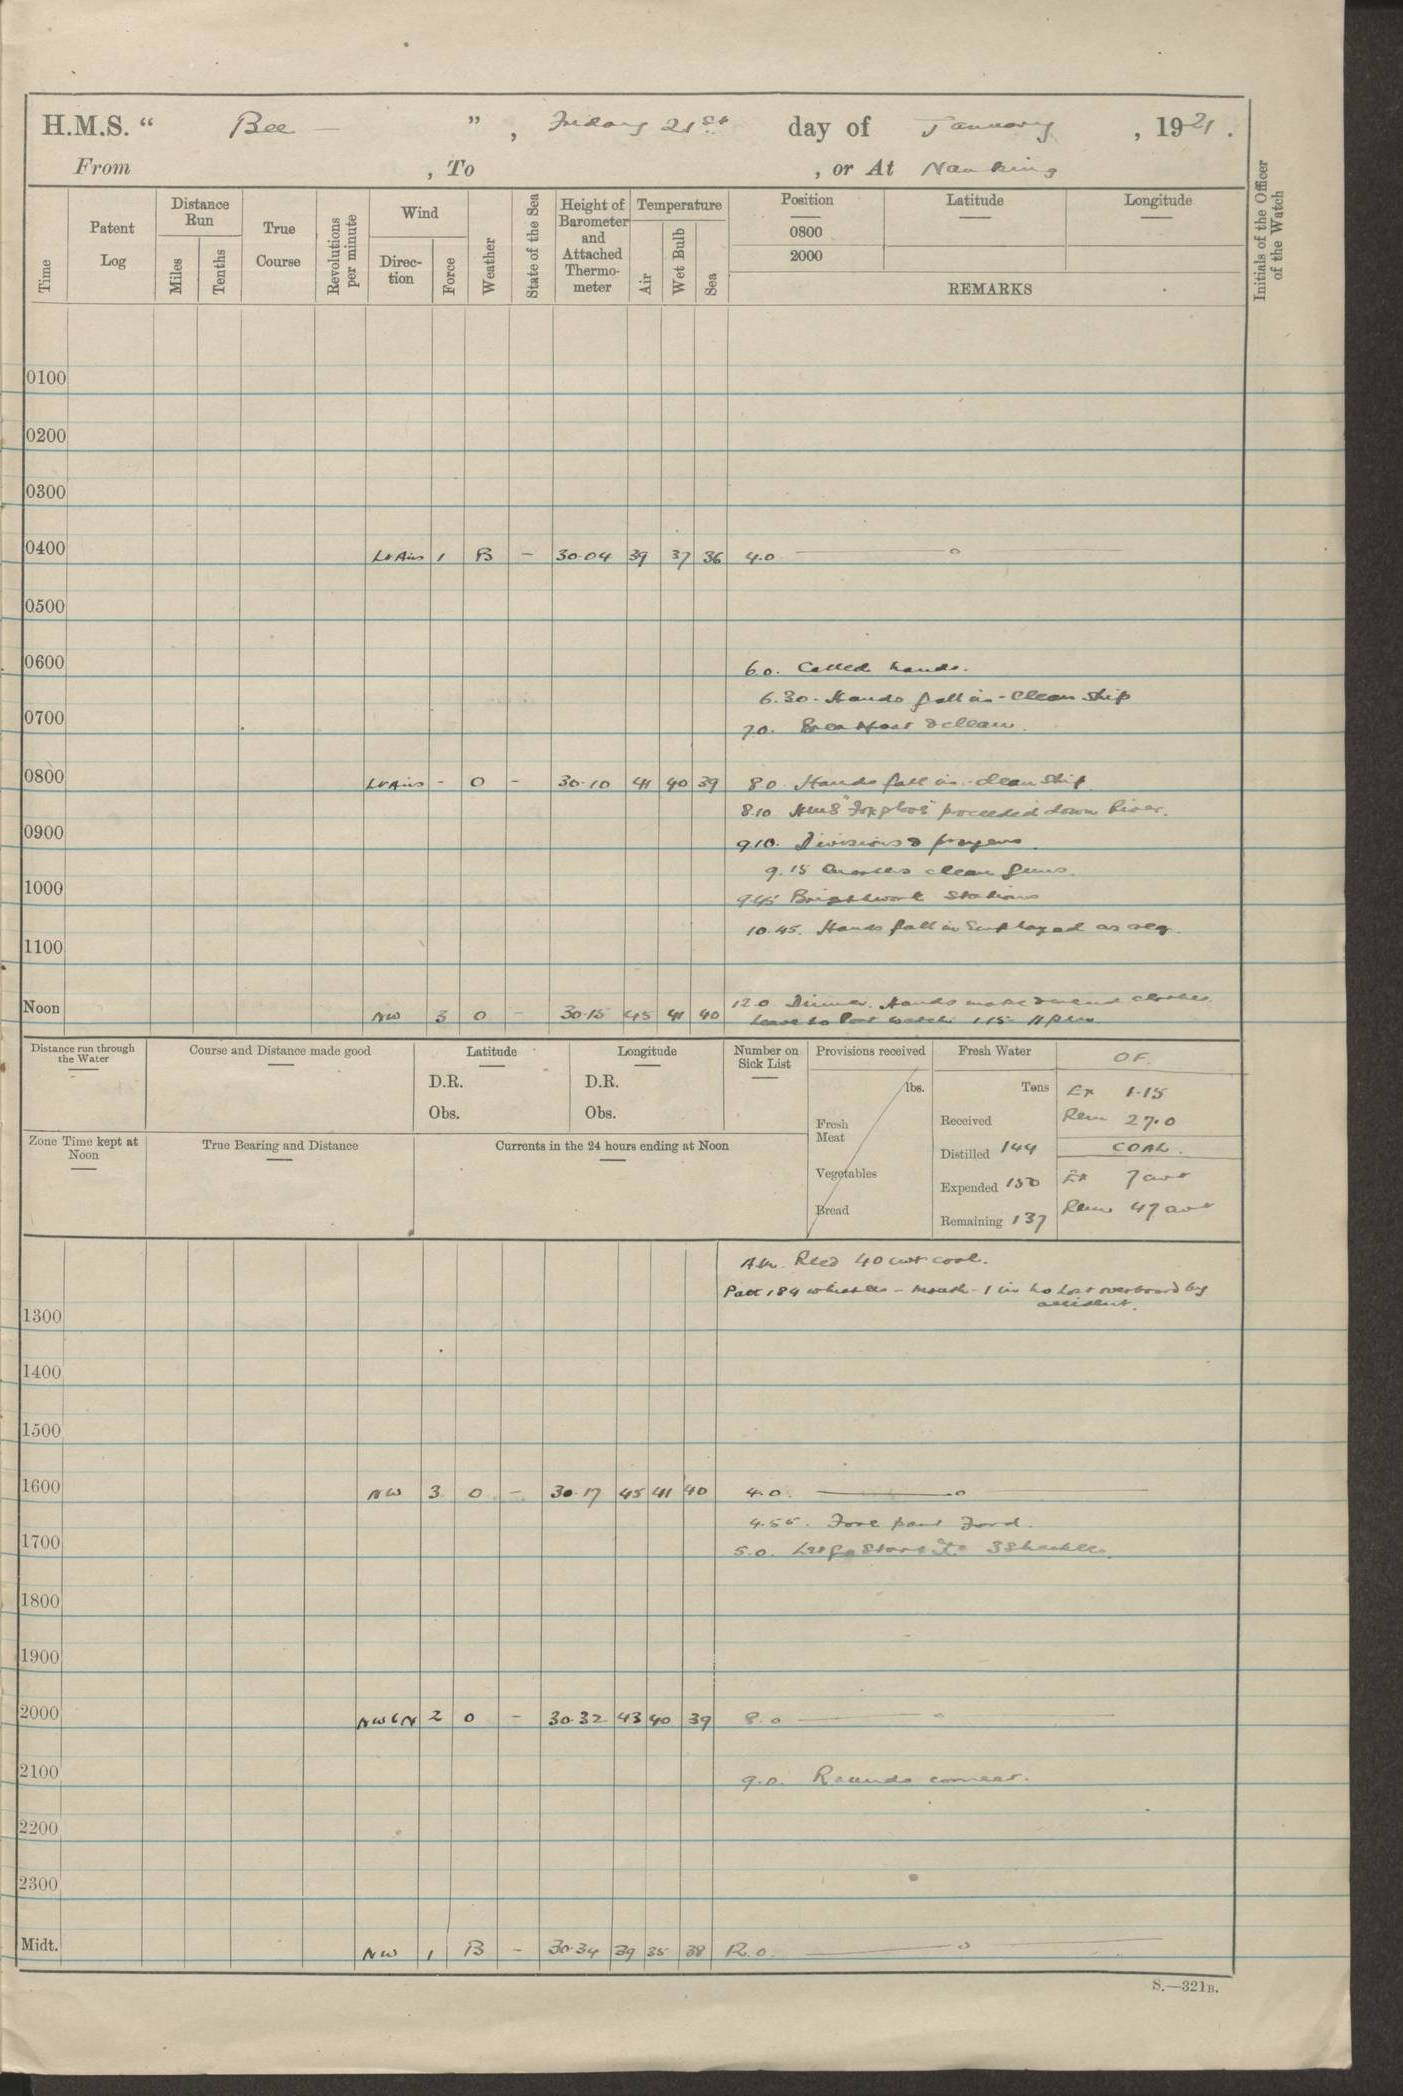 H.M.S. “ Bee — ” , Friday 21st day of January , 1921 .
From , To , or At Nanking
Time
Patent Log
Distance Run
Miles
Tenths
True Course
Revolutions per minute
Wind
Direc-tion
Force
Weather
State of the Sea
Height of Barometer and Attached Thermo-meter
Temperature
Air
Wet Bulb
Sea
Position
0800
2000
Latitude
Longitude
REMARKS
Initials of the Officer of the Watch
0100
0200
0300
0400 Lt Airs 1 B - 30.04 39 37 36 4.0 — o —
0500
0600
6.0. Called hands.
6.30 - Hands fall in - Clean Ship
0700
7.0. Breakfast & clean.
0800 Lt Airs - O - 30.10 41 40 39 8.0. Hands fall in - clean Ship
8.10 HMS "Foxglove" proceeded down River.
0900
9.10. Divisions & prayers.
9.15 Quarters clean guns.
1000
9.45 Brightwork Stations
10.45. Hands fall in Employed as req.
1100
Noon NW 3 O - 30.15 45 41 40 12.0 Dinner. Hands make & mend clothes.
Leave to Port watch 1.15 - 11 pm.
Distance run through the Water
Course and Distance made good
Latitude
D.R.
Obs.
Longitude
D.R.
Obs.
Number on Sick List
Provisions received
lbs.
Fresh Meat
Vegetables
Bread
Fresh Water
Tons
Received
Distilled 144
Expended 150
Remaining 137
O F.
Ex 1.15
Rem 27.0
COAL.
Ex 7 cwt
Rem 47 cwt
Zone Time kept at Noon
True Bearing and Distance
Currents in the 24 hours ending at Noon
AM. Recd 40 cwt coal.
Patt 184 whistles - mouth - 1 in No Lost overboard by
accident.
1300
1400
1500
1600 NW 3 O - 30.17 45 41 40 4.0. — o —
4.55.
1700
5.0. 3 Shackles.
1800
1900
2000 NW6N 2 O - 30.32 43 40 39 8.0 — o —
2100 9.0. Rounds correct.
2200
2300
Midt. NW 1 B - 30.34 39 35 38 R.o. — o —
S.—321B.